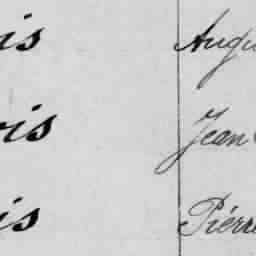 is Augu
ois Jean
is Pierre